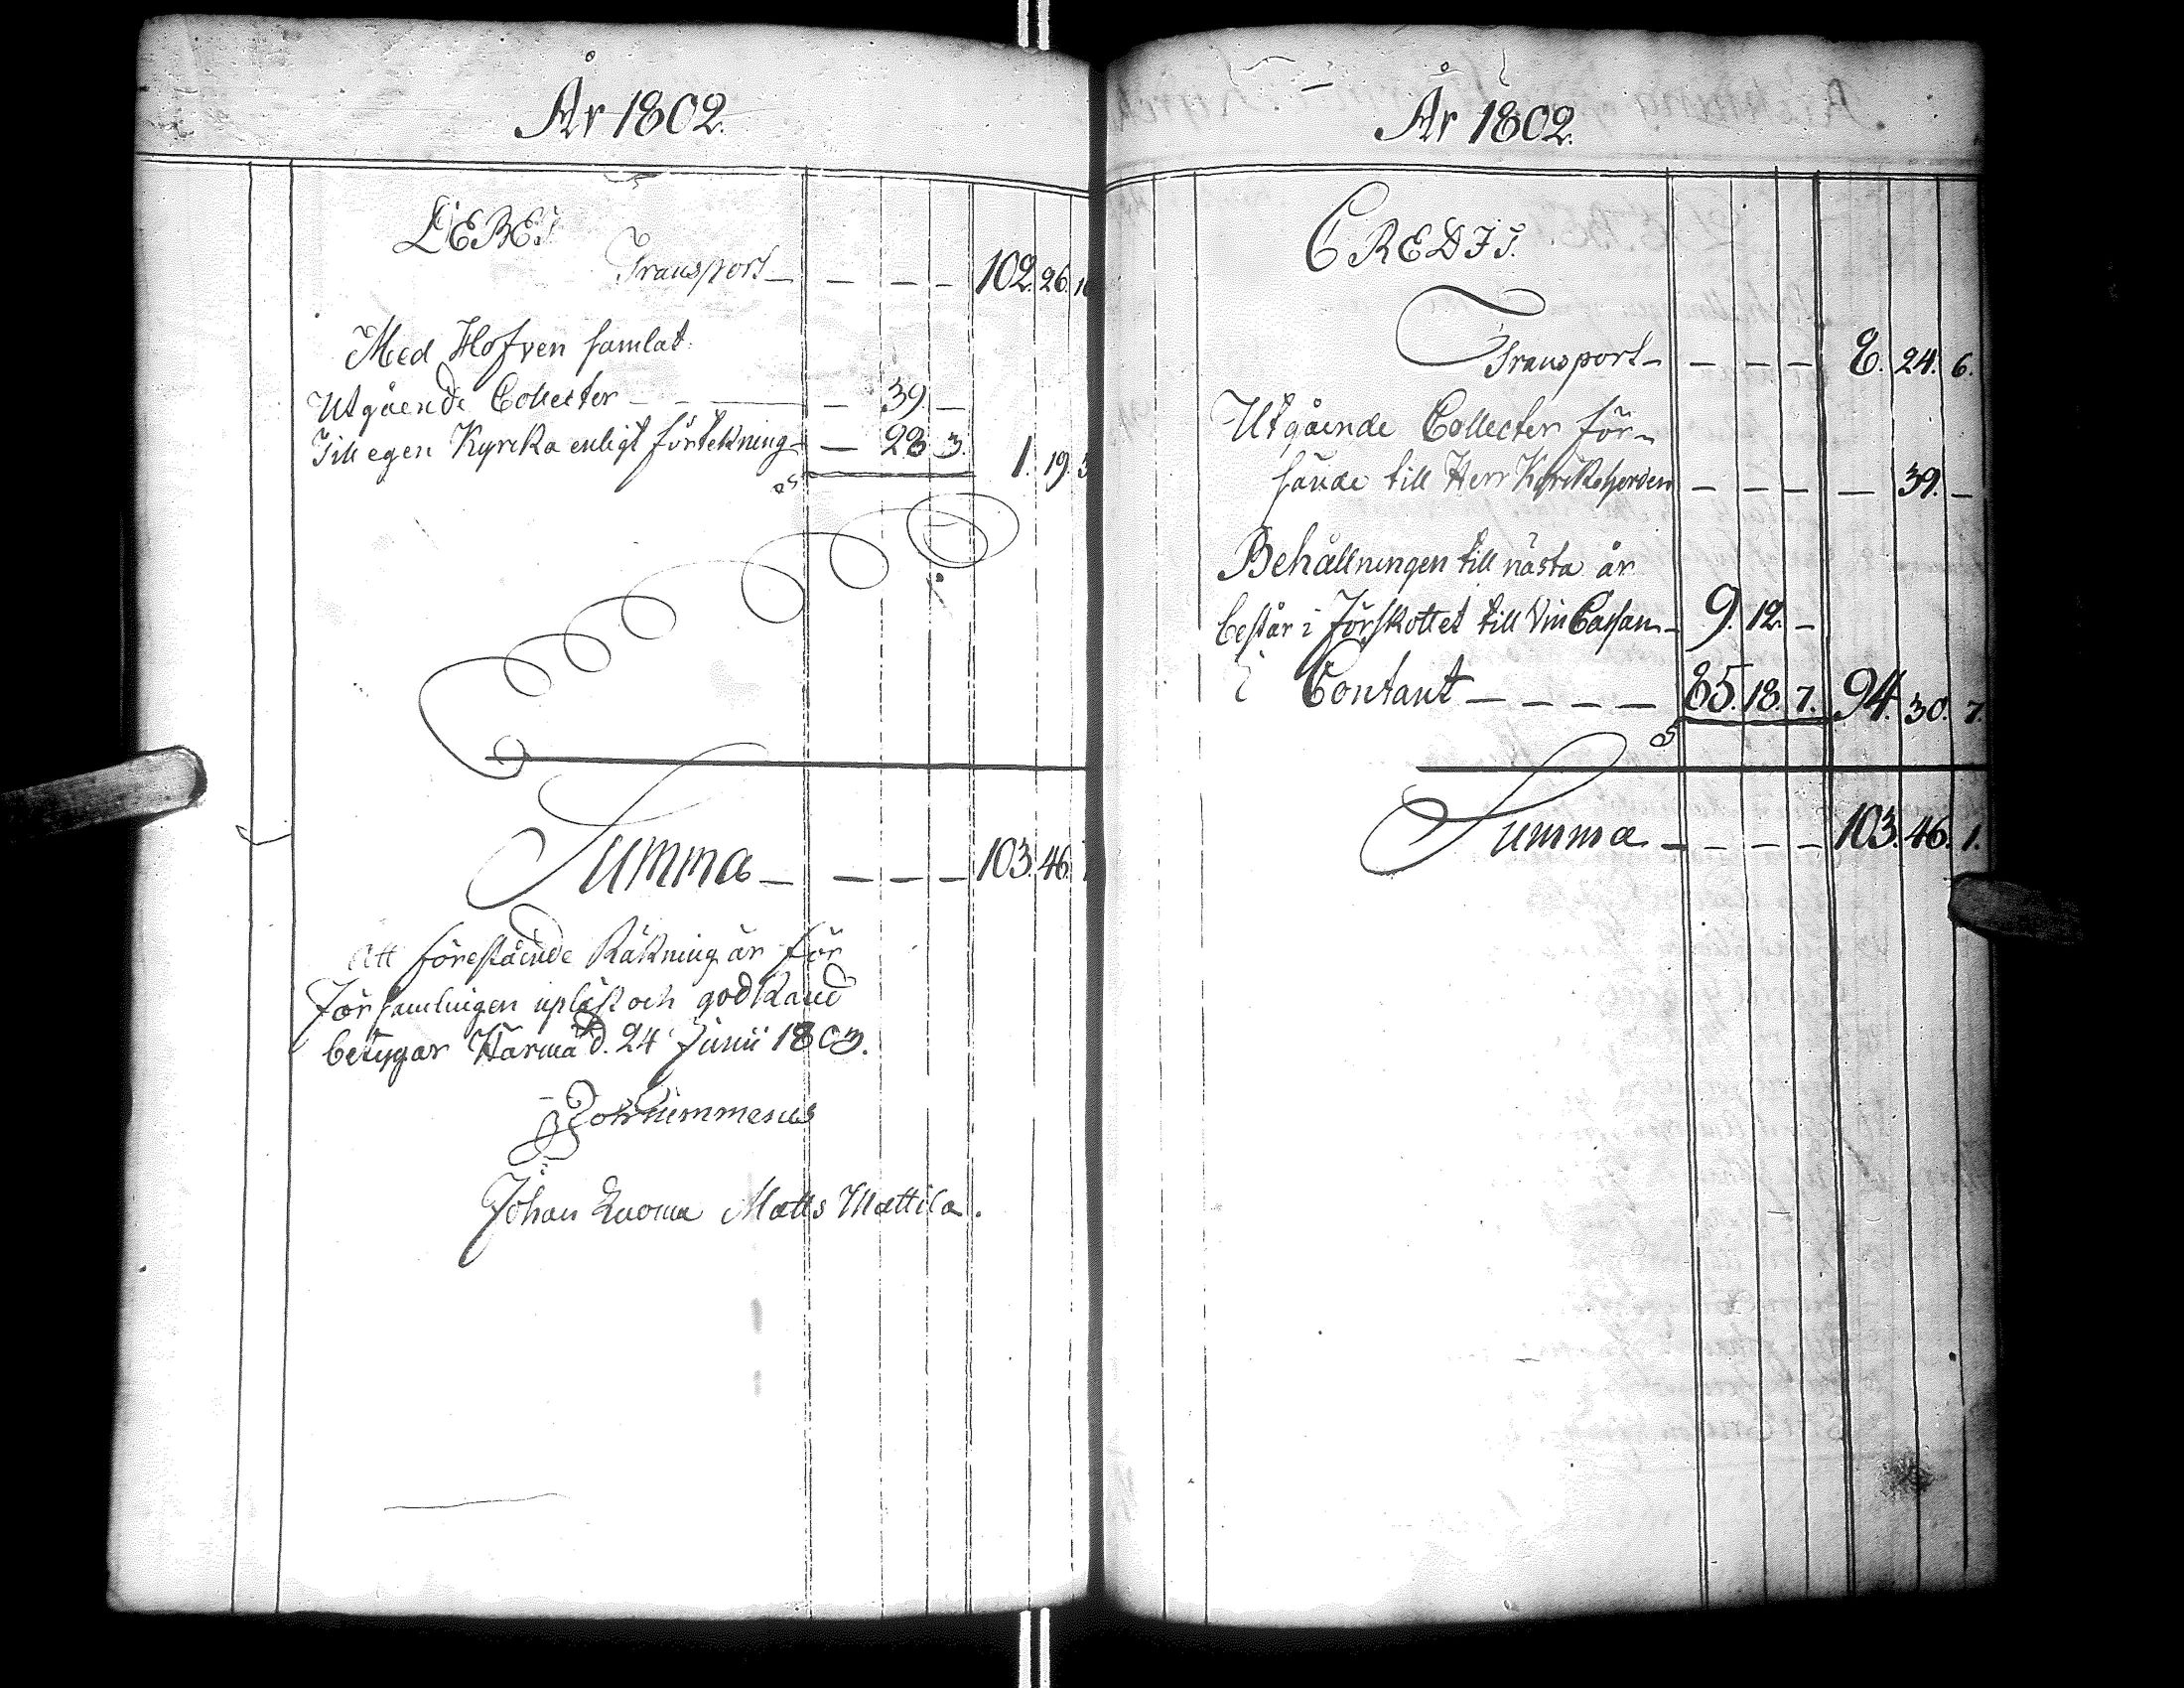 År 1802.
DEBET
Transport - - - - 102. 26. 10
Med Hofven samlat.
Utgående Collecter - - - 39. -
Till egen Kyrcka enligt förtekning - - 28 3. 1. 19. 3
Summa - - - - 103. 46. 1
Att förestående Räkning är för
Församlingen upläst och godkänd
betygar Härmä d. 24 Junii 1803.
Johan Luoma Matts Mattila.
År 1802.
CREDIT.
Transport - - - - 8. 24. 6.
Utgående Collecter för-
sände till Herr Kyrckoherden - - - - 39. -
Behållningen till nästa år
består i Förskottet till Vin Cassan - 9. 12. -
i Contant - - - - 85. 18. 7. 94. 30. 7.
Summa - - - - 103. 46. 1.